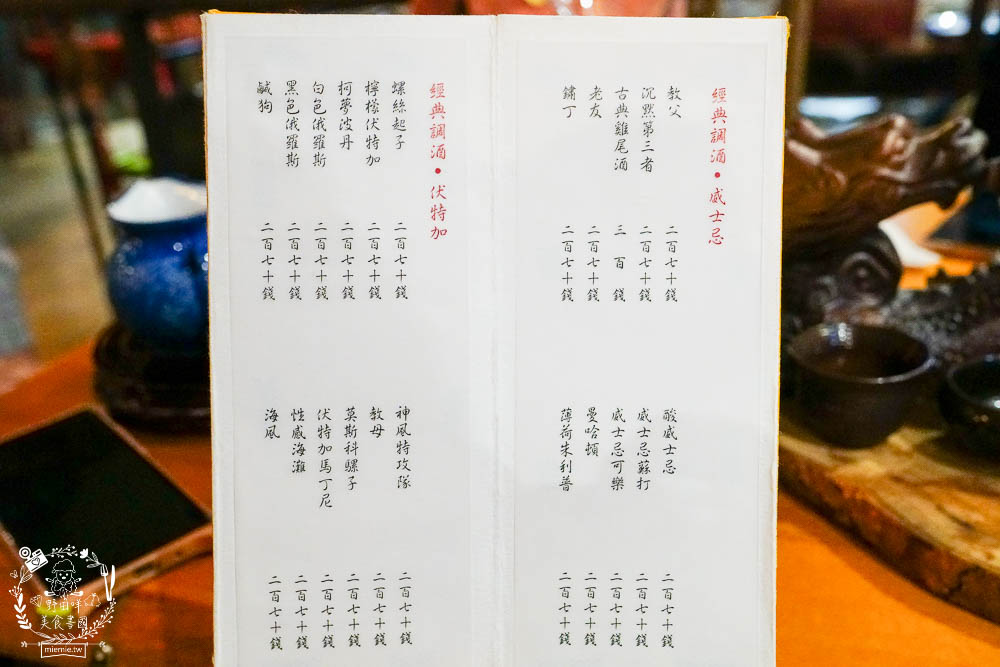 經典調酒•威士忌
教父 二百七十錢
沉默第三者 二百七十錢
古典雞尾酒 三百錢
老友 二百七十錢
鏽丁 二百七十錢
酸威士忌 二百七十錢
威士忌蘇打 二百七十錢
威士忌可樂 二百七十錢
曼哈頓 二百七十錢
薄荷朱利普 二百七十錢
經典調酒•伏特加
螺絲起子 二百七十錢
檸檬伏特加 二百七十錢
柯夢波丹 二百七十錢
白色俄羅斯 二百七十錢
黑色俄羅斯 二百七十錢
鹹狗 二百七十錢
神風特攻隊 二百七十錢
教母 二百七十錢
莫斯科騾子 二百七十錢
伏特加馬丁尼 二百七十錢
性感海灘 二百七十錢
海風 二百七十錢
野田咩
美食書園
miemie.tw